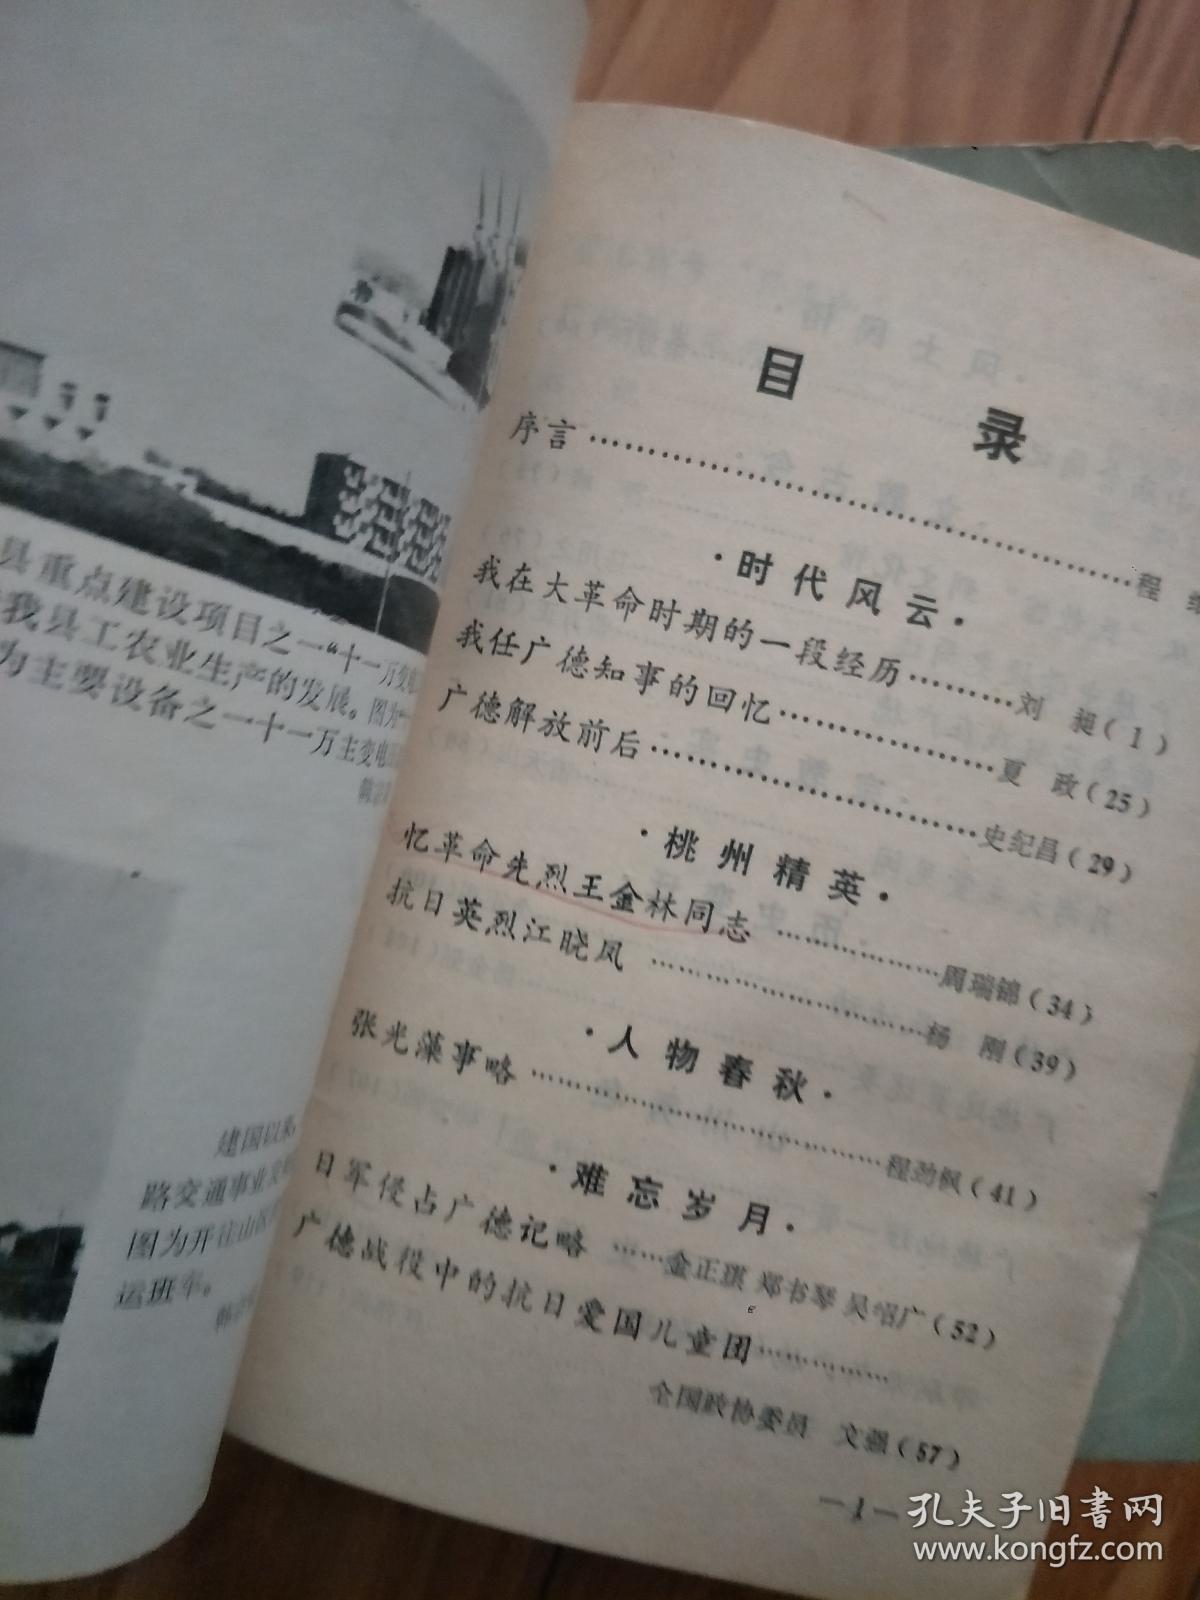 县重点建设项目之一“十一万变电
我县工农业生产的发展。图为
为主要设备之一十一万主变电
建国以来
路交通事业发
图为开往山区
运班车。
目 录
序言……………………………………程
·时代风云·
我在大革命时期的一段经历………刘 昶(1)
我任广德知事的回忆………………夏 政(25)
广德解放前后………………………史纪昌(29)
·桃州精英·
忆革命先烈王金林同志……………周瑞锦(34)
抗日英烈江晓凤……………………杨 刚(39)
·人物春秋·
张光藻事略…………………………程劲枫(41)
·难忘岁月·
日军侵占广德记略……金正琪 郑书琴 吴绍广(52)
广德战役中的抗日爱国儿童团…………
全国政协委员 文强(57)
—1—
孔夫子旧书网
www.kongfz.com